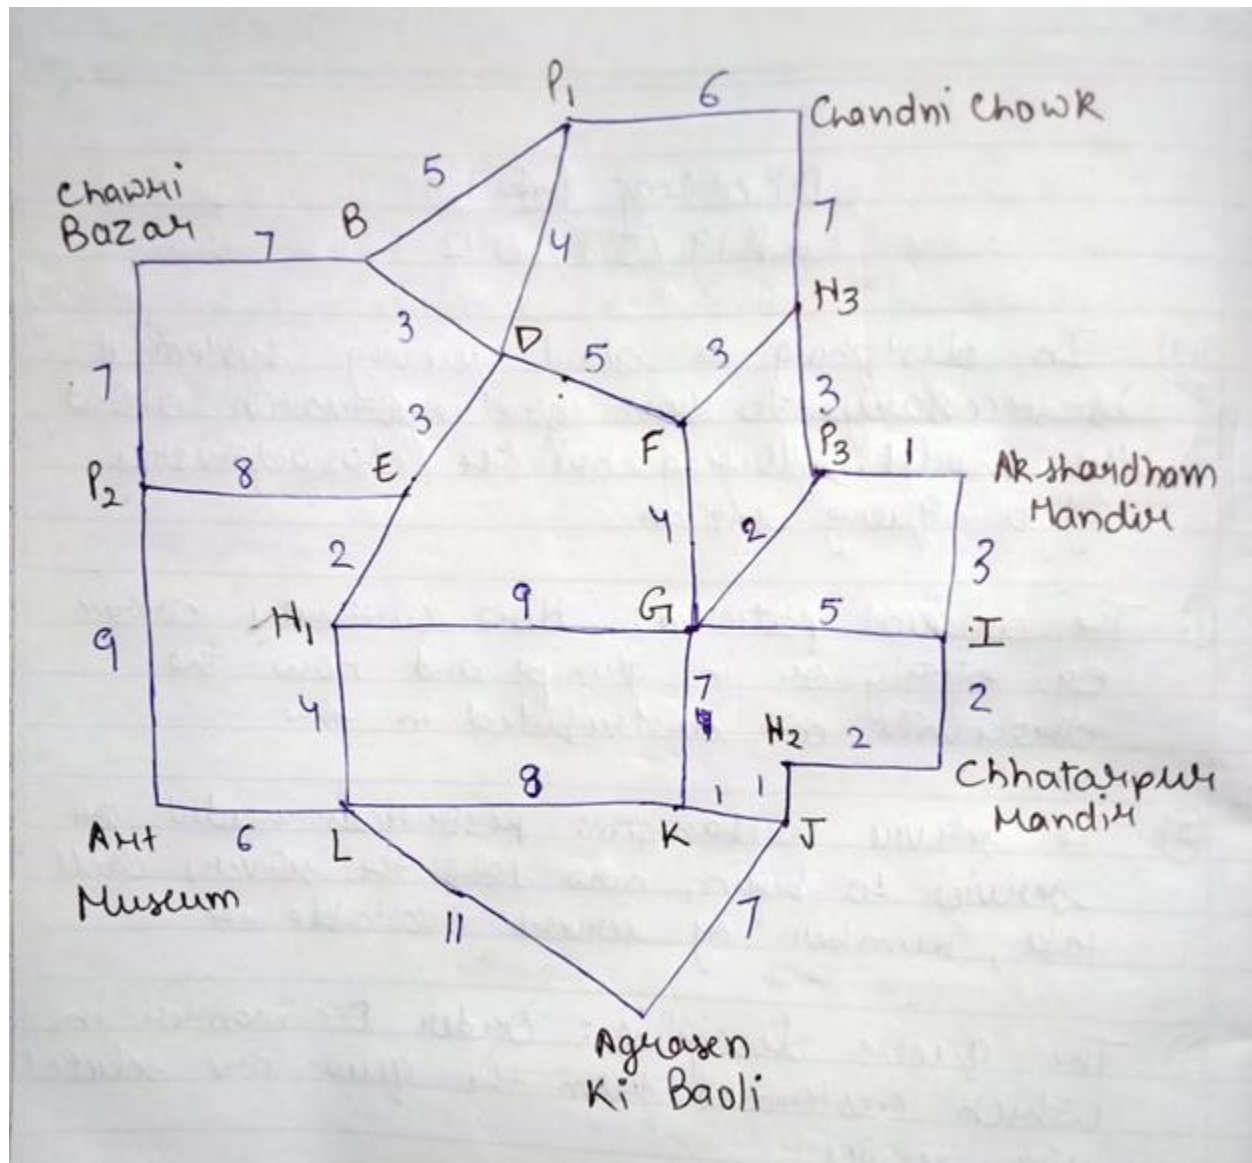 P1
6
Chandni Chowk
5
Chawri
Bazar
B
4
7
7
H3
3
D
5
3
7
3
3
P3
1
F
Akshardham
Mandir
P2
8
E
4
2
2
3
9
G
5
H1
I
9
7
2
4
H2
2
8
Chhatarpur
Mandir
1
1
K
J
Art
6
L
Museum
11
7
Agrasen
Ki Baoli